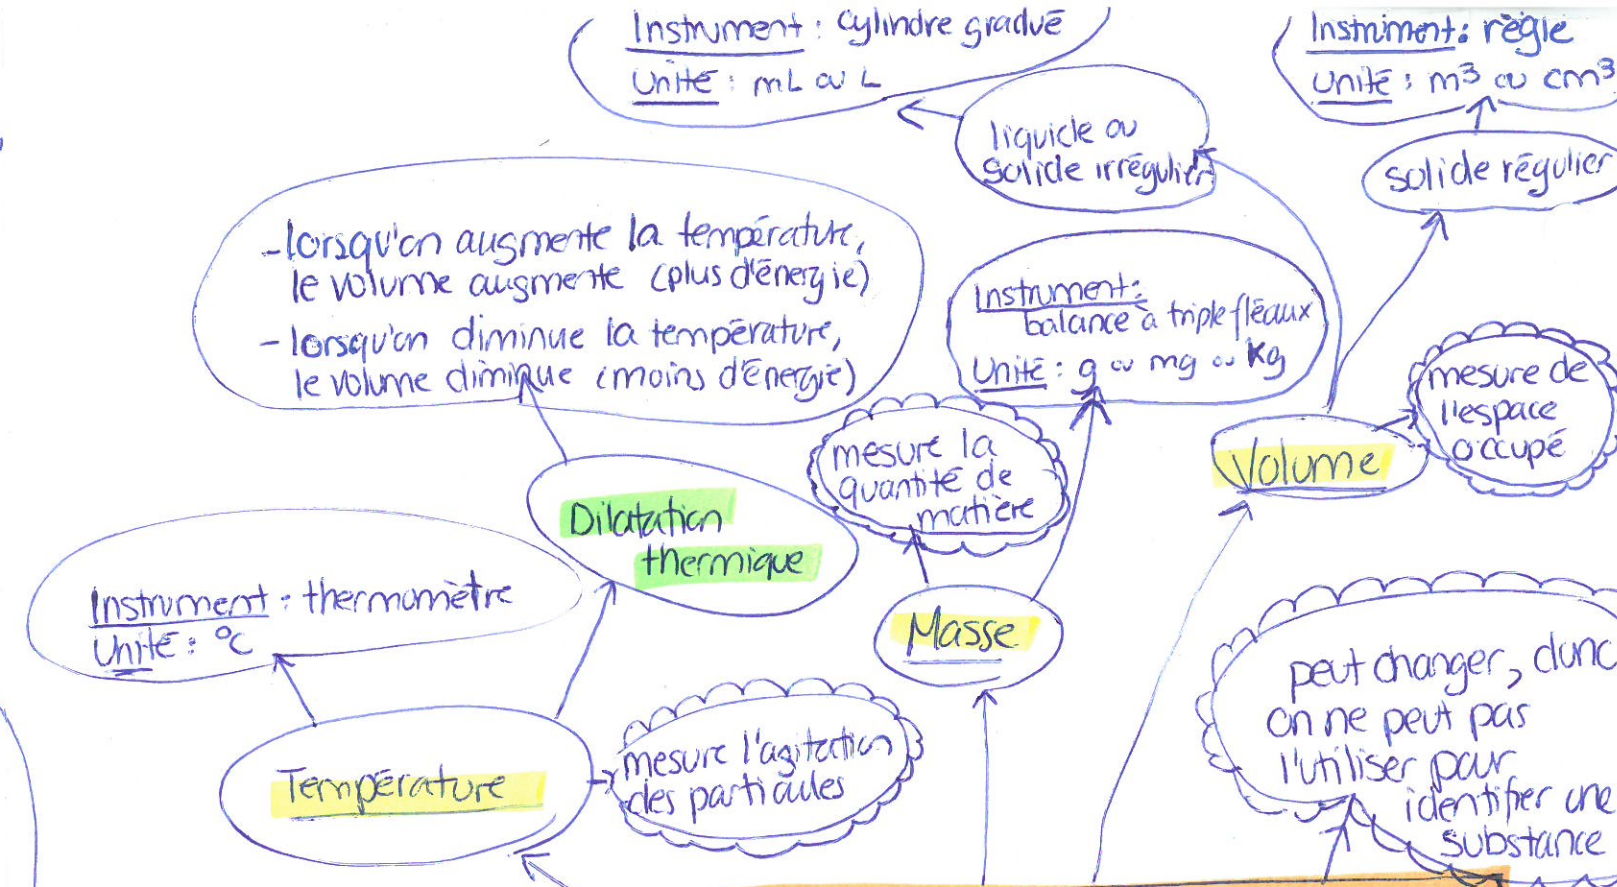 Instrument : cylindre gradué
Unité : mL ou L
Instrument : règle
Unité : m³ ou cm³
liquide ou
solide irrégulier
solide régulier
- lorsqu'on augmente la température,
le volume augmente (plus d'énergie)
- lorsqu'on diminue la température,
le volume diminue (moins d'énergie)
Instrument :
balance à triple fléaux
Unité : g ou mg ou kg
mesure de
l'espace
occupé
mesure la
quantité de
matière
Volume
Dilatation
thermique
Instrument : thermomètre
Unité : °C
Masse
peut changer, donc
on ne peut pas
l'utiliser pour
identifier une
substance
Température
mesure l'agitation
des particules